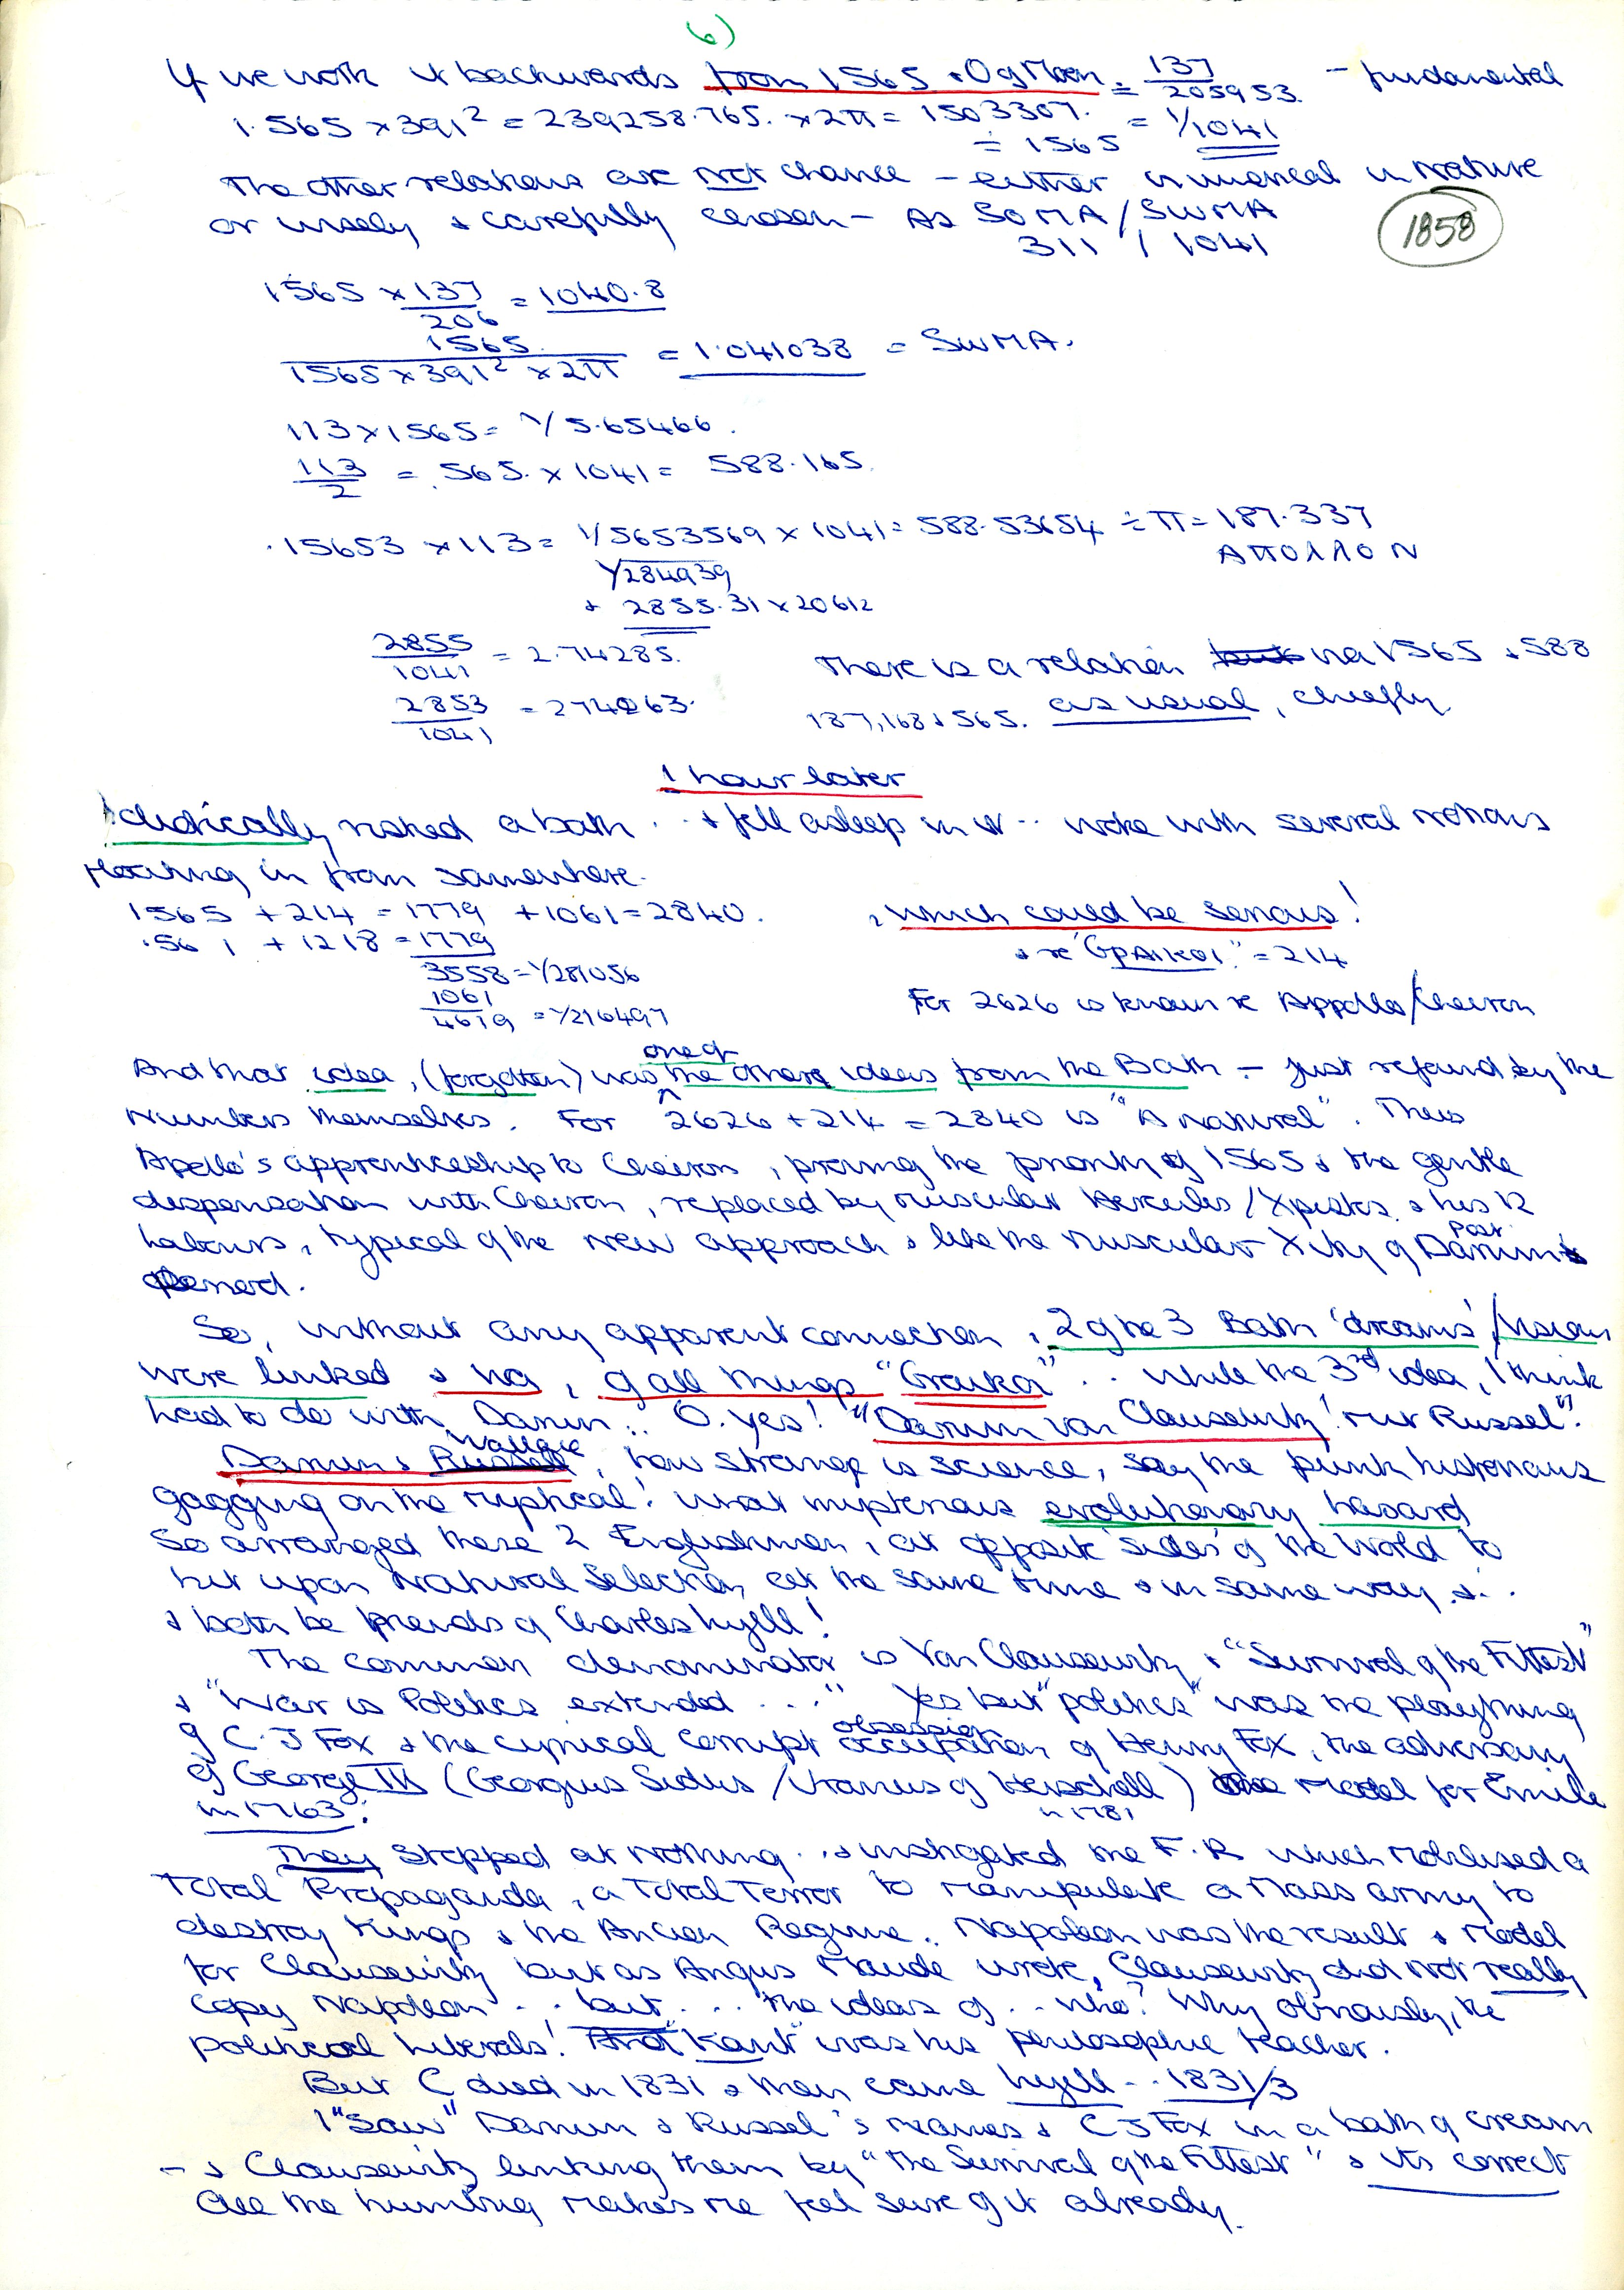 6)
If we work it backwards from 1565 · Og Moon = 137/205953. – fundamental
1.565 × 391² = 239258.765. × 2π = 1503307. ÷ 1565 = 1/1041
The other relations are not chance – either numerical in nature
or wisely & carefully chosen – As SOMA / SWMA
311 / 1041
1858
1565 × 137/206 = 1040.8
1565./1565 × 391² × 2π = 1.041038 = SWMA.
113 × 1565 = 1/5.65466.
113/2 = .565. × 1041 = 588.165.
.15653 × 113 = 1/5653569 × 1041 = 588.53654 ÷ π = 187.337
1/284939 ΑΠΟΛΛΟΝ
+ 2855.31 × 20612
2855/1041 = 2.74285.
There is a relation via 1565 & 588
2853/1041 = 274063.
187, 168 & 565. as usual, chiefly
1 hour later
risked a bath . . & fell asleep in it . . woke with several notions
floating in from somewhere.
1565 + 214 = 1779 + 1061 = 2840. , which could be serious!
.561 + 1218 = 1779 & re "Γραικοι" = 214
3558 = 1/281056
1061 For 2626 is known re Appollo/Cheiron
4619 = 1/216497
And that idea, (forgotten) was one of the others ideas from the Bath – just refound by the
Numbers themselves. For 2626 + 214 = 2840 is "A natural". Thus
Apollo's apprenticeship to Cheiron, proving the priority of 1565 & the gentle
dispensation with Cheiron, replaced by muscular Hercules / Χριστος & his 12
labours, typical of the new approach & like the muscular Xity of Post Darwin
So, without any apparent connection, 2 of the 3 Bath 'dreams' / visions
were linked & via, of all things "Graikoi" . . While the 3rd idea, I think
had to do with Darwin . . O. Yes! "Darwin von Clausewitz! mit Russel".
Darwin & Wallace, how strange is science, say the punk historians
gagging on the mythical! What mysterious evolutionary hazard
So arranged these 2 Englishmen, at opposite 'sides' of the World to
hit upon Natural Selection, at the same time & in same way. & . .
& both be friends of Charles Lyell!
The common denominator is Von Clausewitz & "Survival of the Fittest"
& "War is Politics extended . . ." Yes but "politics" was the plaything
of C. J Fox & the cynical corrupt obsession occupation of Henry Fox, the adversary
of George III (Georgius Sidus / Uranus of Herschell in 1781) model for Emile
in 1763.
They stopped at nothing . . & instigated the F.R which mobilised a
Total Propaganda, a Total Terror to manipulate a mass army to
destroy Kings & the Ancien Regime. Napoleon was the result & model
for Clausewitz but as Angus Maude wrote, Clausewitz did not really
copy Napoleon . . but . . . the ideas of . . who? Why obviously, the
political liberals! And "Kant" was his philosophic teacher.
But C died in 1831 & then came Lyell . . 1831/3
I "saw" Darwin & Russel's names & C J Fox in a bath of cream
– & Clausewitz linking them by "the Survival of the Fittest" & its correct
All the hunting makes me feel sure of it already.